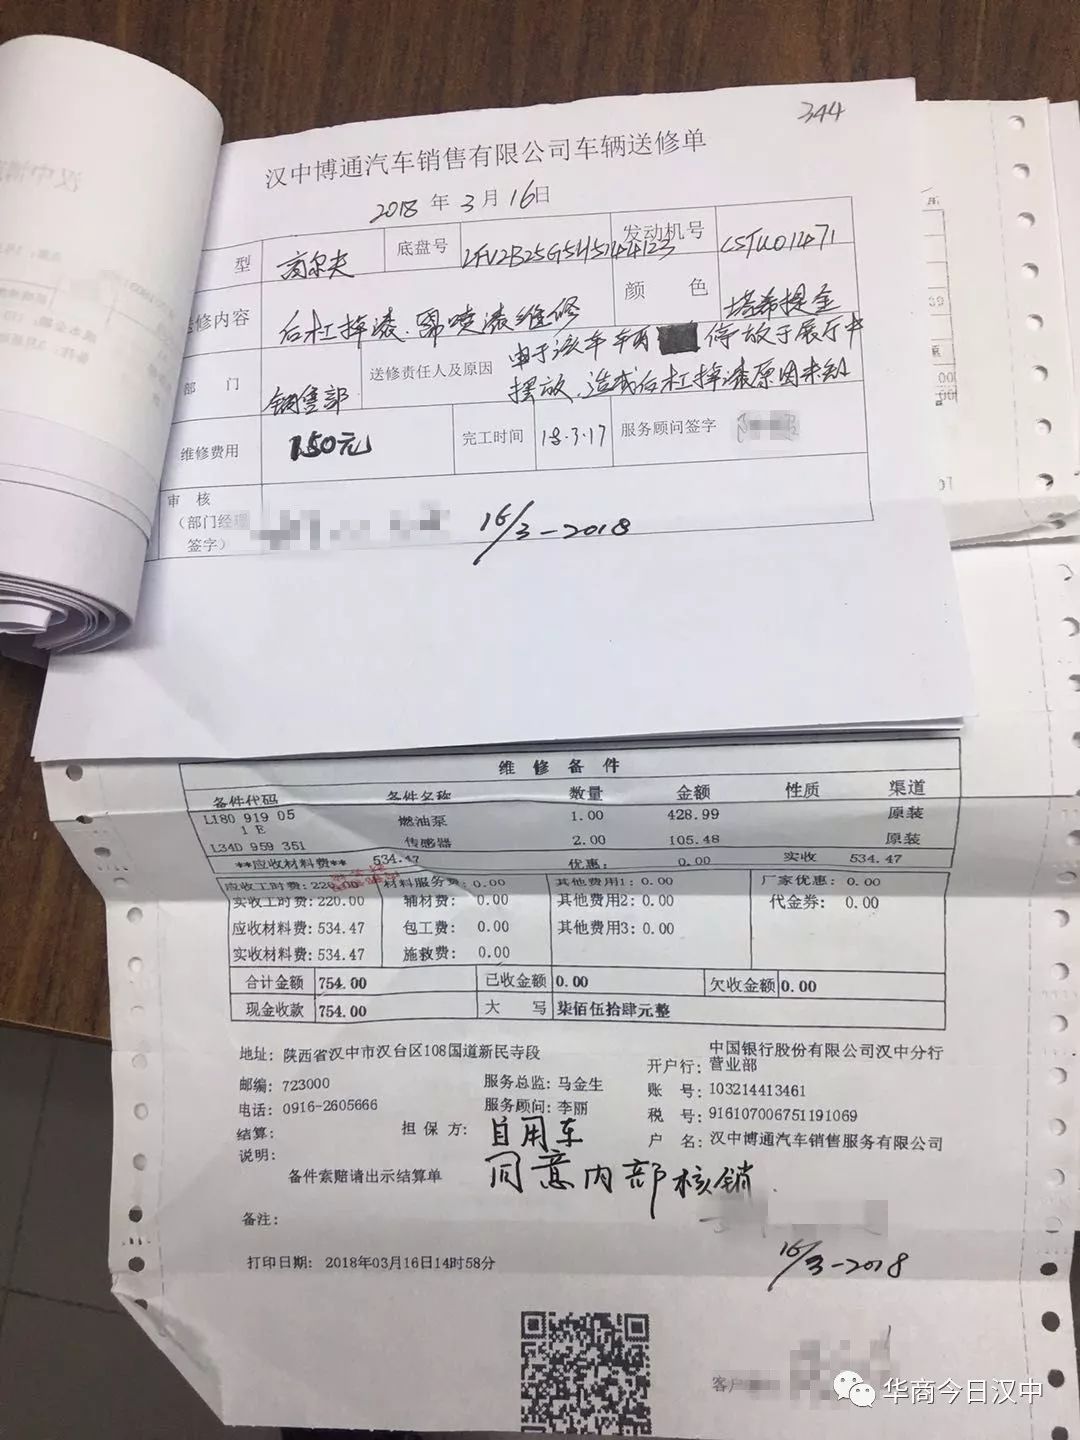 344
汉中博通汽车销售有限公司车辆送修单
2018 年 3 月 16日
型 高尔夫 底盘号 LFV2B25G5H5144123 发动机号 CSTU01471
送修内容 后杠掉漆.需喷漆维修 颜 色 塔希提金
部 门 销售部 送修责任人及原因 由于该车车辆 停放于展厅中
摆放.造成后杠掉漆原因未知
维修费用 150元 完工时间 18.3.17 服务顾问签字
审 核
(部门经理
签字) 16/3-2018
维 修 备 件
备件代码 备件名称 数量 金额 性质 渠道
L180 919 05
1 E 燃油泵 1.00 428.99 原装
L34D 959 351 传感器 2.00 105.48 原装
**应收材料费** 534.47 优惠: 0.00 实收 534.47
应收工时费: 220.00 材料服务费: 0.00 其他费用1: 0.00 厂家优惠: 0.00
实收工时费: 220.00 辅材费: 0.00 其他费用2: 0.00 代金券: 0.00
应收材料费: 534.47 包工费: 0.00 其他费用3: 0.00
实收材料费: 534.47 施救费: 0.00
合计金额 754.00 已收金额 0.00 欠收金额 0.00
现金收款 754.00 大 写 柒佰伍拾肆元整
地址: 陕西省汉中市汉台区108国道新民寺段
邮编: 723000 服务总监: 马金生
电话: 0916-2605666 服务顾问: 李丽
结算: 担 保 方: 自用车
说明: 同意内部核销.
备件索赔请出示结算单
开户行: 中国银行股份有限公司汉中分行
营业部
账 号: 103214413461
税 号: 916107006751191069
户 名: 汉中博通汽车销售服务有限公司
备注:
16/3-2018
打印日期: 2018年03月16日14时58分
客户
华商今日汉中